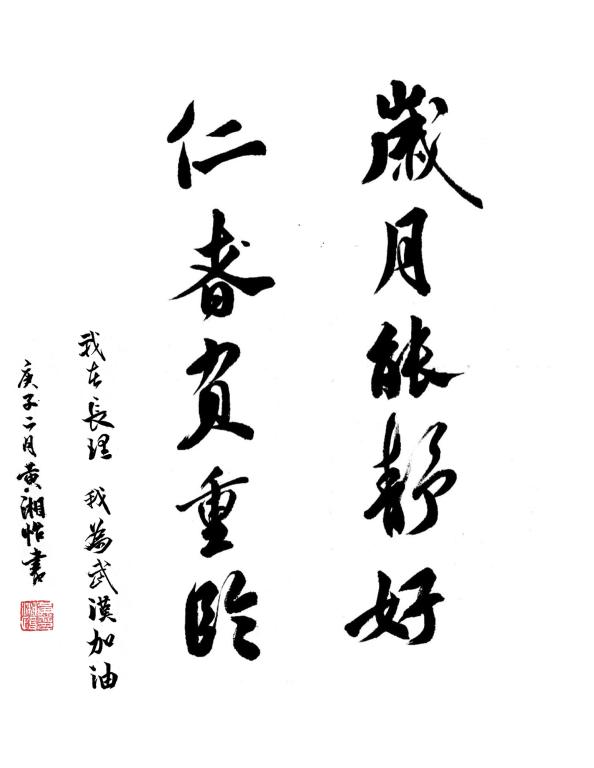 歲月能靜好
仁者負重臨
我在長理 我為武漢加油
庚子二月黃湘怡書